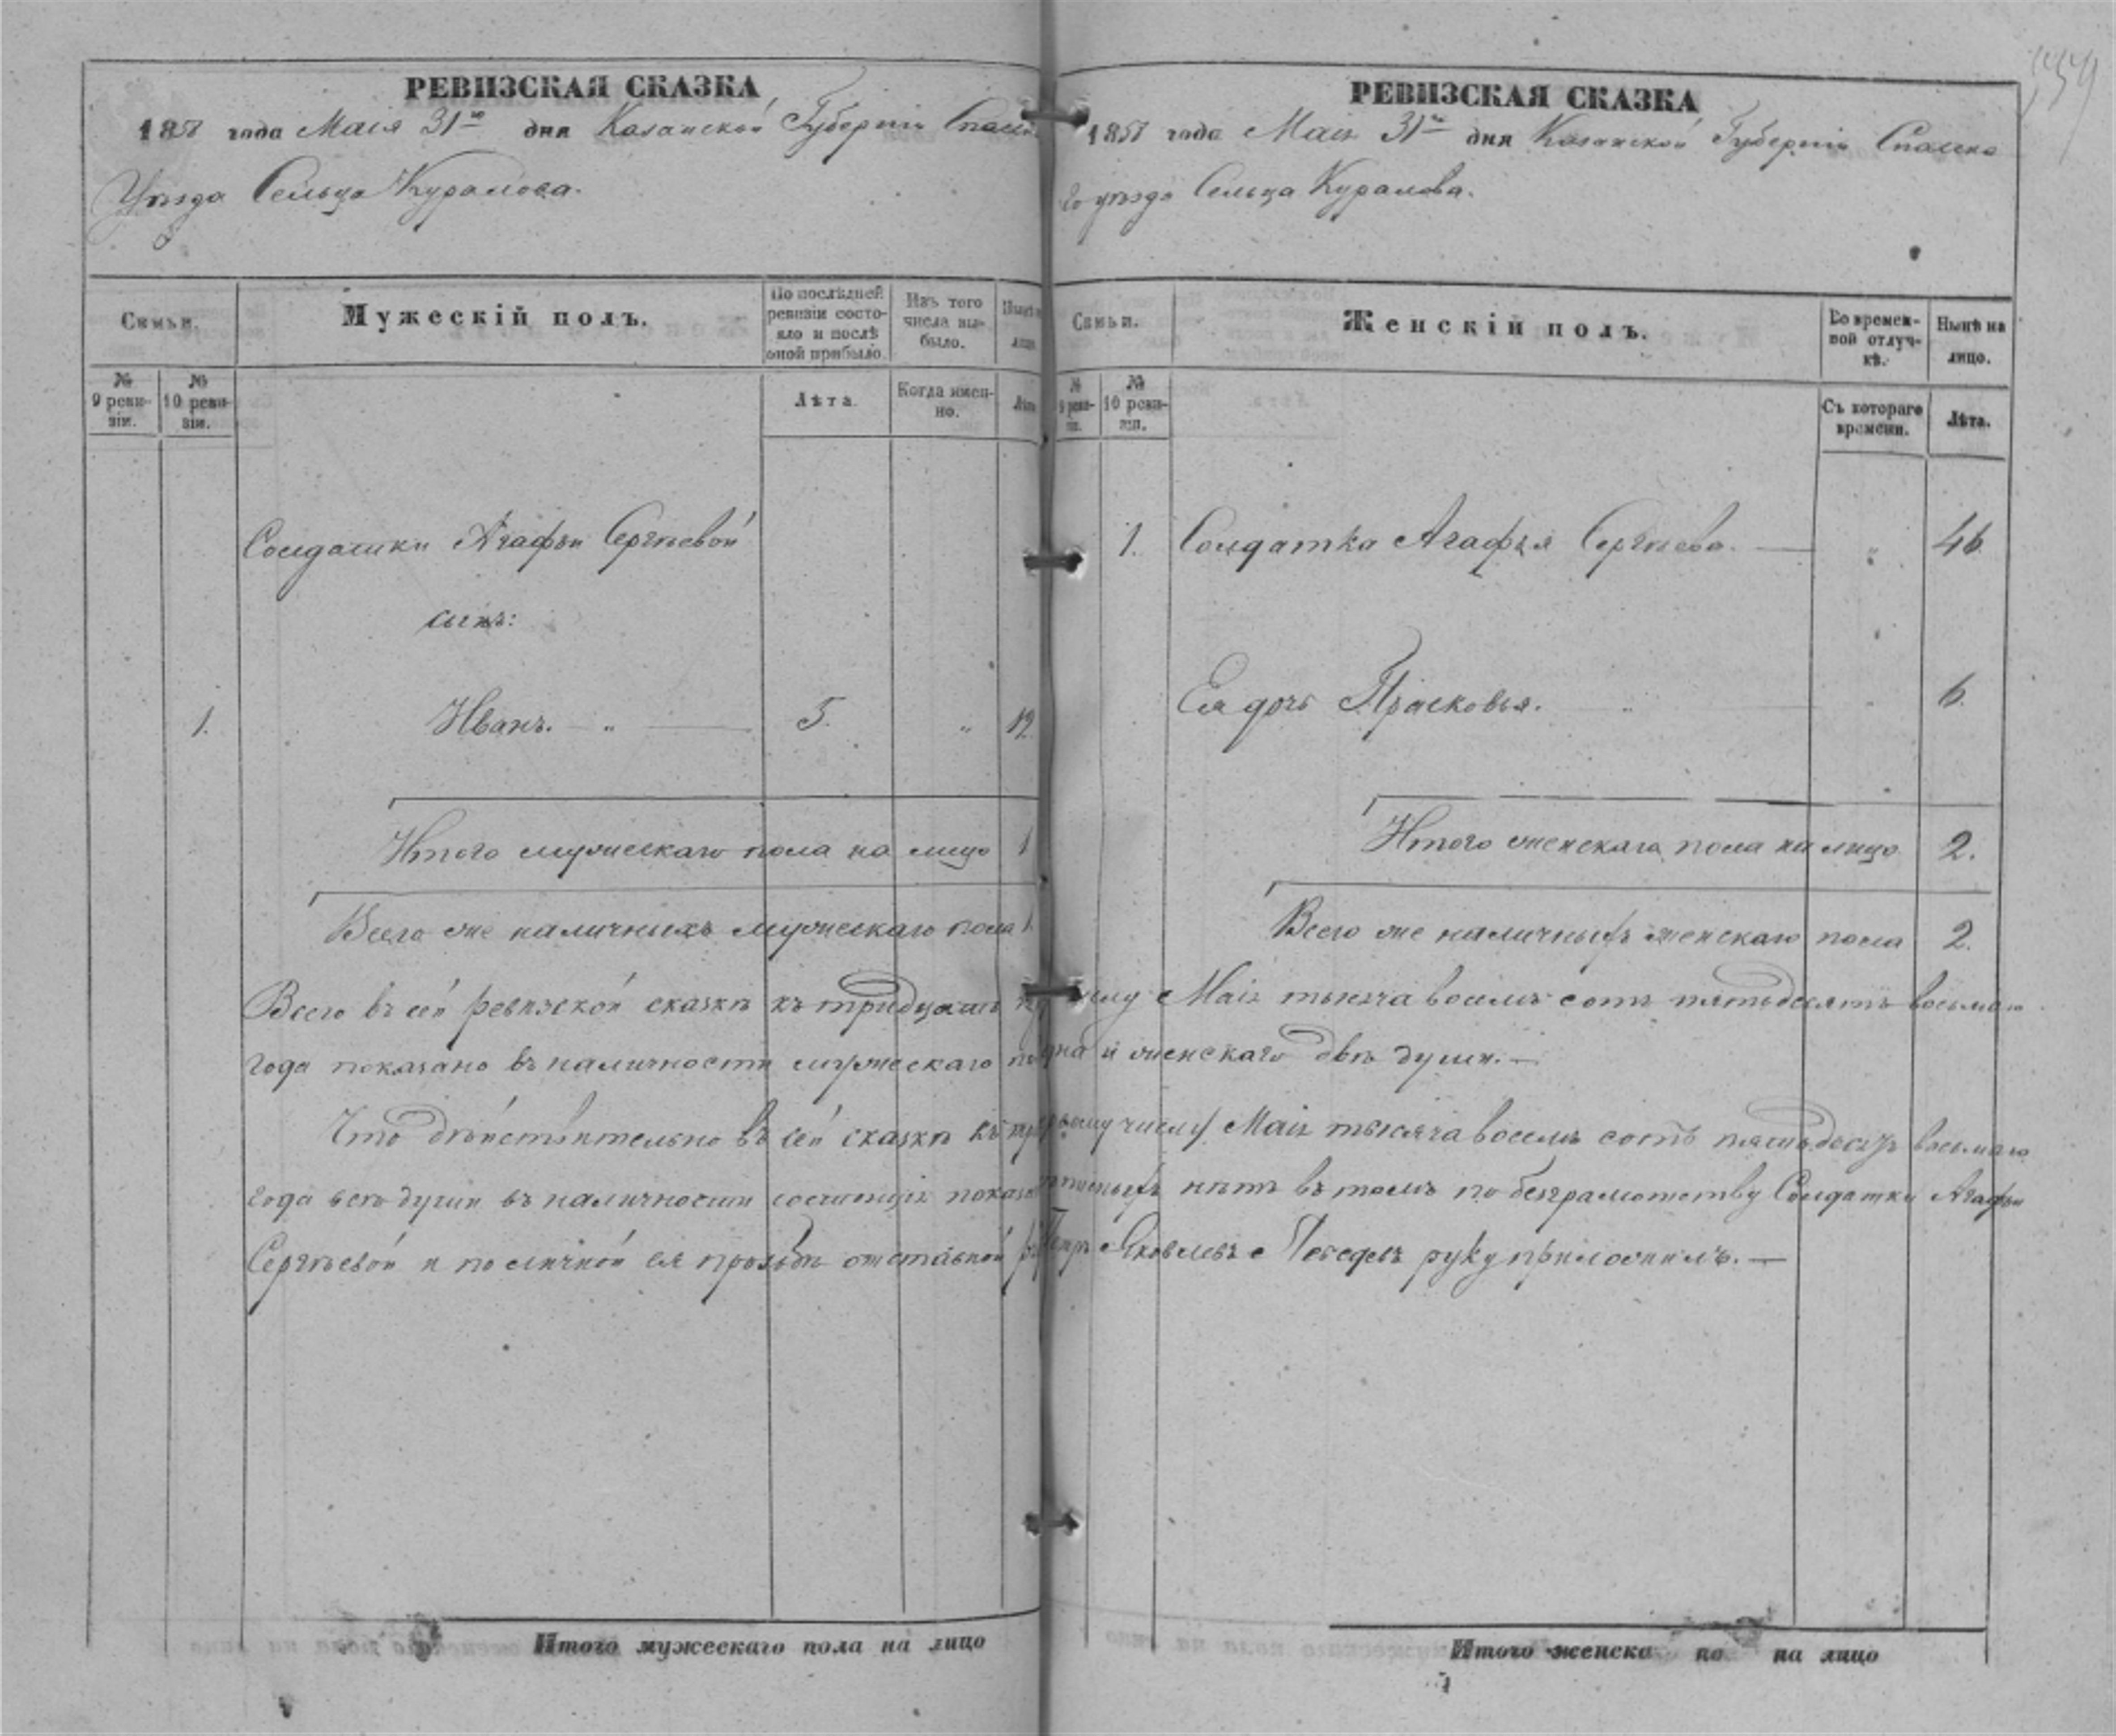 РЕВИЗСКАЯ СКАЗКА
1858 года Маія 31го дня Казанской Губерніи Спасск
Уѣзда Сельца Куралова.
Семьи.
Мужескій полъ.
По послѣдней ревизіи состояло и послѣ оной прибыло.
Изъ того числа выбыло.
№ 9 ревизіи.
№ 10 ревизіи.
Лѣта.
Когда именно.
Солдатки Агафьи Сергѣевой
сынъ:
1. Иванъ. — „ — 5. „ 12
Итого мужескаго пола на лицо 1
Всего же наличныхъ мужескаго пола 1
Всего въ сей ревизской сказкѣ къ тридцать
года показано въ наличности мужескаго
Что дѣйствительно въ сей сказкѣ къ
года всѣ души въ наличности состоящія показа
Сергѣевой и по личной ея прозьбѣ отставной
Итого мужескаго пола на лицо
РЕВИЗСКАЯ СКАЗКА
1858 года Маія 31го дня Казанской Губерніи Спасска
го уѣзда Сельца Куралова.
Семьи.
Женскій полъ.
Во временной отлучкѣ.
Нынѣ на лицо.
№ 9 ревизіи.
№ 10 ревизіи.
Съ котораго времени.
Лѣта.
1. Солдатка Агафья Сергѣева. — „ 46
Ея дочь Прасковья. „ 6.
Итого женскаго пола на лицо 2.
Всего же наличныхъ женскаго пола 2.
Маія тысяча восемь сотъ пятьдесятъ восьмаго
и женскаго двѣ души. —
числу Маія тысяча восемь сотъ пятьдесятъ восьмаго
нѣтъ въ томъ по безграмотству Солдатки Агафьи
Яковлевъ Лебедевъ руку приложилъ. —
Итого женска по на лицо